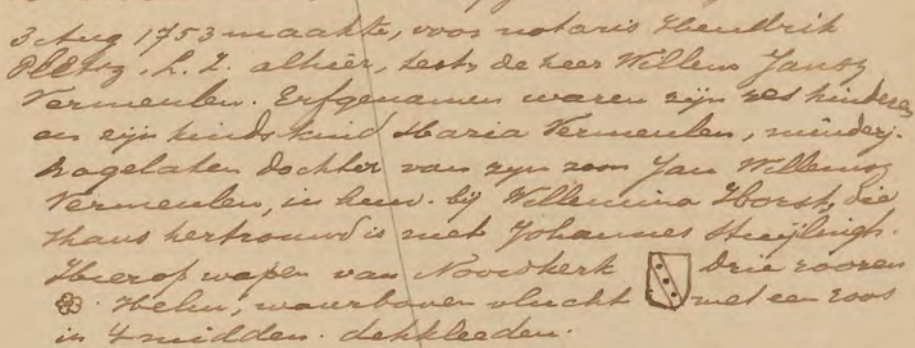 3 Aug 1753 maakte, voor notaris Hendrik
alhier, test, de heer Willem Jansz
Vermeulen. Erfgenamen waren zijn zes kinderen
en zijn kindskind Maria Vermeulen, minderj.
nagelaten dochter van zijn zoon Jan Willemsz
Vermeulen, in huw. bij Willemina Horst, die
thans hertrouwd is met Johannes
Hierop wapen van Noordkerk drie roozen
Helm, waarboven vlucht met een roos
in 't midden. dekkleeden.